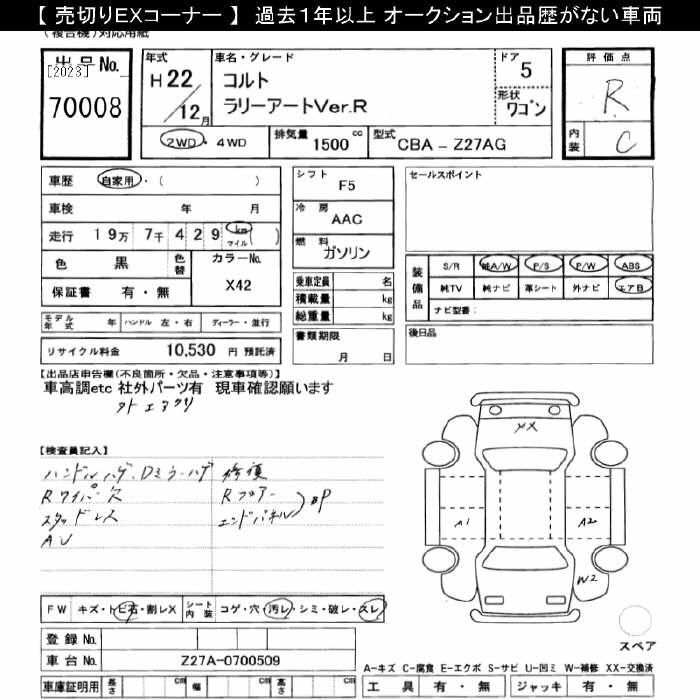 【 売切りEXコーナー 】 過去1年以上 オークション出品歴がない車両
(複合機) 対応用紙
出品No.
[2023]
70008
年式
H 22 / 12 月
車名・グレード
コルト
ラリーアートVer.R
ドア 5
形状 ワゴン
2WD ・ 4WD
排気量 1500 cc
型式 CBA - Z27AG
評価点
R
内装 C
車歴 自家用・( )
車検 年 月
走行 19万 7千 4 2 9 km マイル ( )
色 黒 色替
カラーNo. X42
保証書 有・無
モデル年式 年 ハンドル 左・右 ディーラー・並行
リサイクル料金 10,530 円 預託済
シフト F5
冷房 AAC
燃料 ガソリン
乗車定員 名
積載量 kg
総重量 kg
書類期限
月 日
セールスポイント
装備品
S/R 純A/W P/S P/W ABS
純TV 純ナビ 革シート 外ナビ エアB
ナビ型番:
後日品
【出品店申告欄(不良箇所・欠品・注意事項等)】
車高調etc 社外パーツ有 現車確認願います
外トエアクリ
【検査員記入】
ハンドルハゲ・Dミラーハゲ
Rワイパー欠
スタッドレス
AU
修復
Rフロアー
エンドパネル
BP
XX
A1
A2
W2
スペア
FW キズ・トビ石・割レX
シート内装 コゲ・穴・汚レ・シミ・破レ・スレ
登録No.
車台No. Z27A-0700509
車庫証明用 長さ cm 幅 cm 高さ cm
A-キズ C-腐食 E-エクボ S-サビ U-凹ミ W-補修 XX-交換済
工具 有・無 ジャッキ 有・無